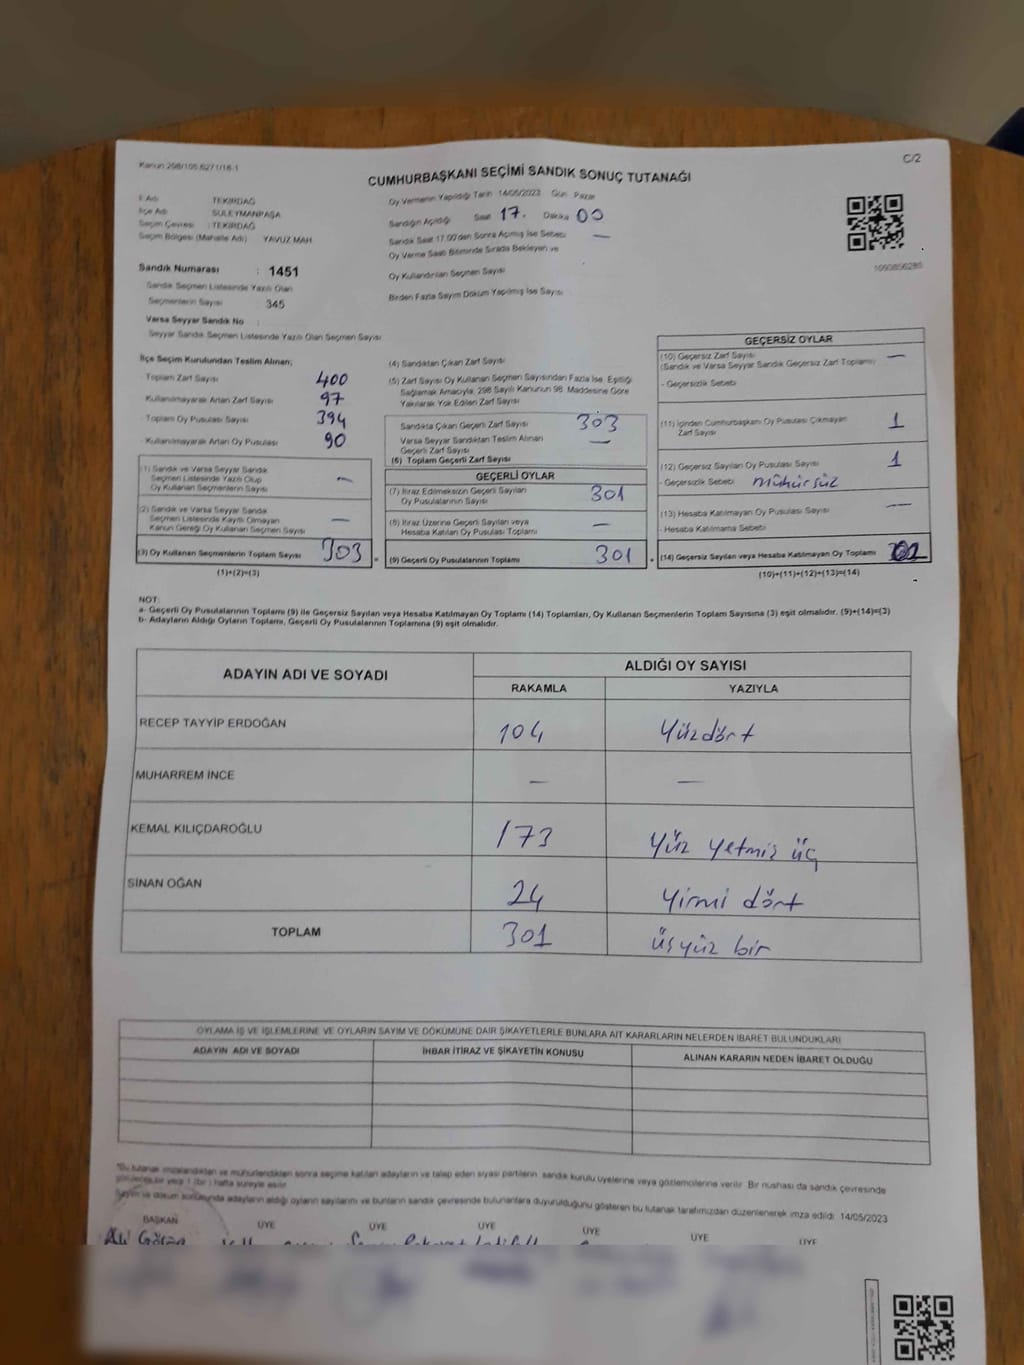 Kanun 298/105 6271/16-1
C/2
CUMHURBAŞKANI SEÇİMİ SANDIK SONUÇ TUTANAĞI
İl Adı : TEKİRDAĞ
İlçe Adı : SÜLEYMANPAŞA
Seçim Çevresi : TEKİRDAĞ
Seçim Bölgesi (Mahalle Adı) YAVUZ MAH
Oy Vermenin Yapıldığı Tarih 14/05/2023 Gün Pazar
Sandığın Açıldığı Saat 17. Dakika 00
Sandık Saat 17:00'den Sonra Açılmış İse Sebebi —
Oy Verme Saati Bitiminde Sırada Bekleyen ve
Oy Kullandırılan Seçmen Sayısı
Birden Fazla Sayım Döküm Yapılmış İse Sayısı
Sandık Numarası : 1451
Sandık Seçmen Listesinde Yazılı Olan
Seçmenlerin Sayısı 345
Varsa Seyyar Sandık No :
Seyyar Sandık Seçmen Listesinde Yazılı Olan Seçmen Sayısı
İlçe Seçim Kurulundan Teslim Alınan;
Toplam Zarf Sayısı 400
Kullanılmayarak Artan Zarf Sayısı 97
Toplam Oy Pusulası Sayısı 394
- Kullanılmayarak Artan Oy Pusulası 90
(1) Sandık ve Varsa Seyyar Sandık
Seçmen Listesinde Yazılı Olup
Oy Kullanan Seçmenlerin Sayısı —
(2) Sandık ve Varsa Seyyar Sandık
Seçmen Listesinde Kayıtlı Olmayan
Kanun Gereği Oy Kullanan Seçmen Sayısı —
(3) Oy Kullanan Seçmenlerin Toplam Sayısı 303
(1)+(2)=(3)
(4) Sandıktan Çıkan Zarf Sayısı
(5) Zarf Sayısı Oy Kullanan Seçmen Sayısından Fazla İse, Eşitliği
Sağlamak Amacıyla, 298 Sayılı Kanunun 98. Maddesine Göre
Yakılarak Yok Edilen Zarf Sayısı
Sandıkta Çıkan Geçerli Zarf Sayısı 303
Varsa Seyyar Sandıktan Teslim Alınan
Geçerli Zarf Sayısı —
(6) Toplam Geçerli Zarf Sayısı
GEÇERLİ OYLAR
(7) İtiraz Edilmeksizin Geçerli Sayılan
Oy Pusulalarının Sayısı 301
(8) İtiraz Üzerine Geçerli Sayılan veya
Hesaba Katılan Oy Pusulası Toplamı —
(9) Geçerli Oy Pusulalarının Toplamı 301
GEÇERSİZ OYLAR
(10) Geçersiz Zarf Sayısı —
(Sandık ve Varsa Seyyar Sandık Geçersiz Zarf Toplamı)
- Geçersizlik Sebebi
(11) İçinden Cumhurbaşkanı Oy Pusulası Çıkmayan
Zarf Sayısı 1
(12) Geçersiz Sayılan Oy Pusulası Sayısı 1
- Geçersizlik Sebebi mühürsüz
(13) Hesaba Katılmayan Oy Pusulası Sayısı —
- Hesaba Katılmama Sebebi
(14) Geçersiz Sayılan veya Hesaba Katılmayan Oy Toplamı
(10)+(11)+(12)+(13)=(14)
NOT:
a- Geçerli Oy Pusulalarının Toplamı (9) ile Geçersiz Sayılan veya Hesaba Katılmayan Oy Toplamı (14) Toplamları, Oy Kullanan Seçmenlerin Toplam Sayısına (3) eşit olmalıdır. (9)+(14)=(3)
b- Adayların Aldığı Oyların Toplamı, Geçerli Oy Pusulalarının Toplamına (9) eşit olmalıdır.
ADAYIN ADI VE SOYADI
ALDIĞI OY SAYISI
RAKAMLA YAZIYLA
RECEP TAYYİP ERDOĞAN 104 Yüzdört
MUHARREM İNCE — —
KEMAL KILIÇDAROĞLU 173 Yüz yetmiş üç
SİNAN OĞAN 24 Yirmi dört
TOPLAM 301 üsyüz bir
OYLAMA İŞ VE İŞLEMLERİNE VE OYLARIN SAYIM VE DÖKÜMÜNE DAİR ŞİKAYETLERLE BUNLARA AİT KARARLARIN NELERDEN İBARET BULUNDUKLARI
ADAYIN ADI VE SOYADI İHBAR İTİRAZ VE ŞİKAYETİN KONUSU ALINAN KARARIN NEDEN İBARET OLDUĞU
*Bu tutanak imzalandıktan ve mühürlendikten sonra seçime katılan adayların ve talep eden siyasi partilerin sandık kurulu üyelerine veya gözlemcilerine verilir. Bir nüshası da sandık çevresinde
görülecek bir yere 1 (bir) hafta süreyle asılır.
Sayım ve döküm sonucunda adayların aldığı oyların sayılarını ve bunların sandık çevresinde bulunanlara duyurulduğunu gösteren bu tutanak tarafımızdan düzenlenerek imza edildi. 14/05/2023
BAŞKAN ÜYE ÜYE ÜYE ÜYE ÜYE ÜYE